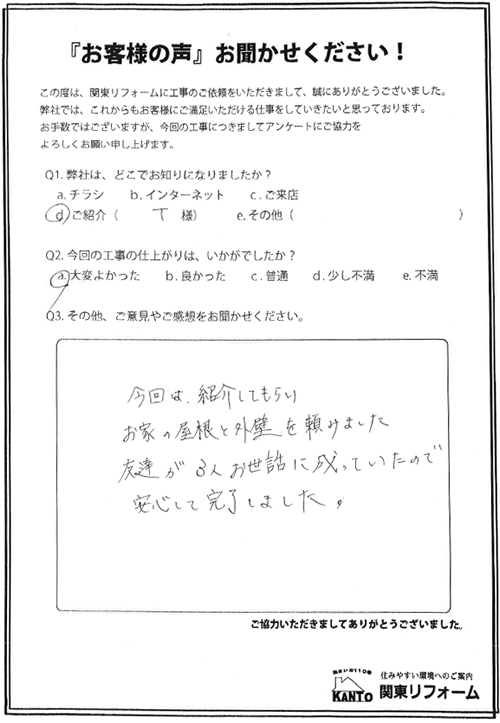 『お客様の声』お聞かせください！
この度は、関東リフォームに工事のご依頼をいただきまして、誠にありがとうございました。
弊社では、これからもお客様にご満足いただける仕事をしていきたいと思っております。
お手数ではございますが、今回の工事につきましてアンケートにご協力を
よろしくお願い申し上げます。
Q1. 弊社は、どこでお知りになりましたか？
a. チラシ　b. インターネット　c. ご来店
d. ご紹介（　T　様）　e. その他（　）
Q2. 今回の工事の仕上がりは、いかがでしたか？
a. 大変よかった　b. 良かった　c. 普通　d. 少し不満　e. 不満
Q3. その他、ご意見やご感想をお聞かせください。
今回は、紹介してもらい
お家の屋根と外壁を頼みました
友達が3人お世話に成っていたので
安心して完了しました。
ご協力いただきましてありがとうございました。
住まいの110番
KANTO
住みやすい環境へのご案内
関東リフォーム